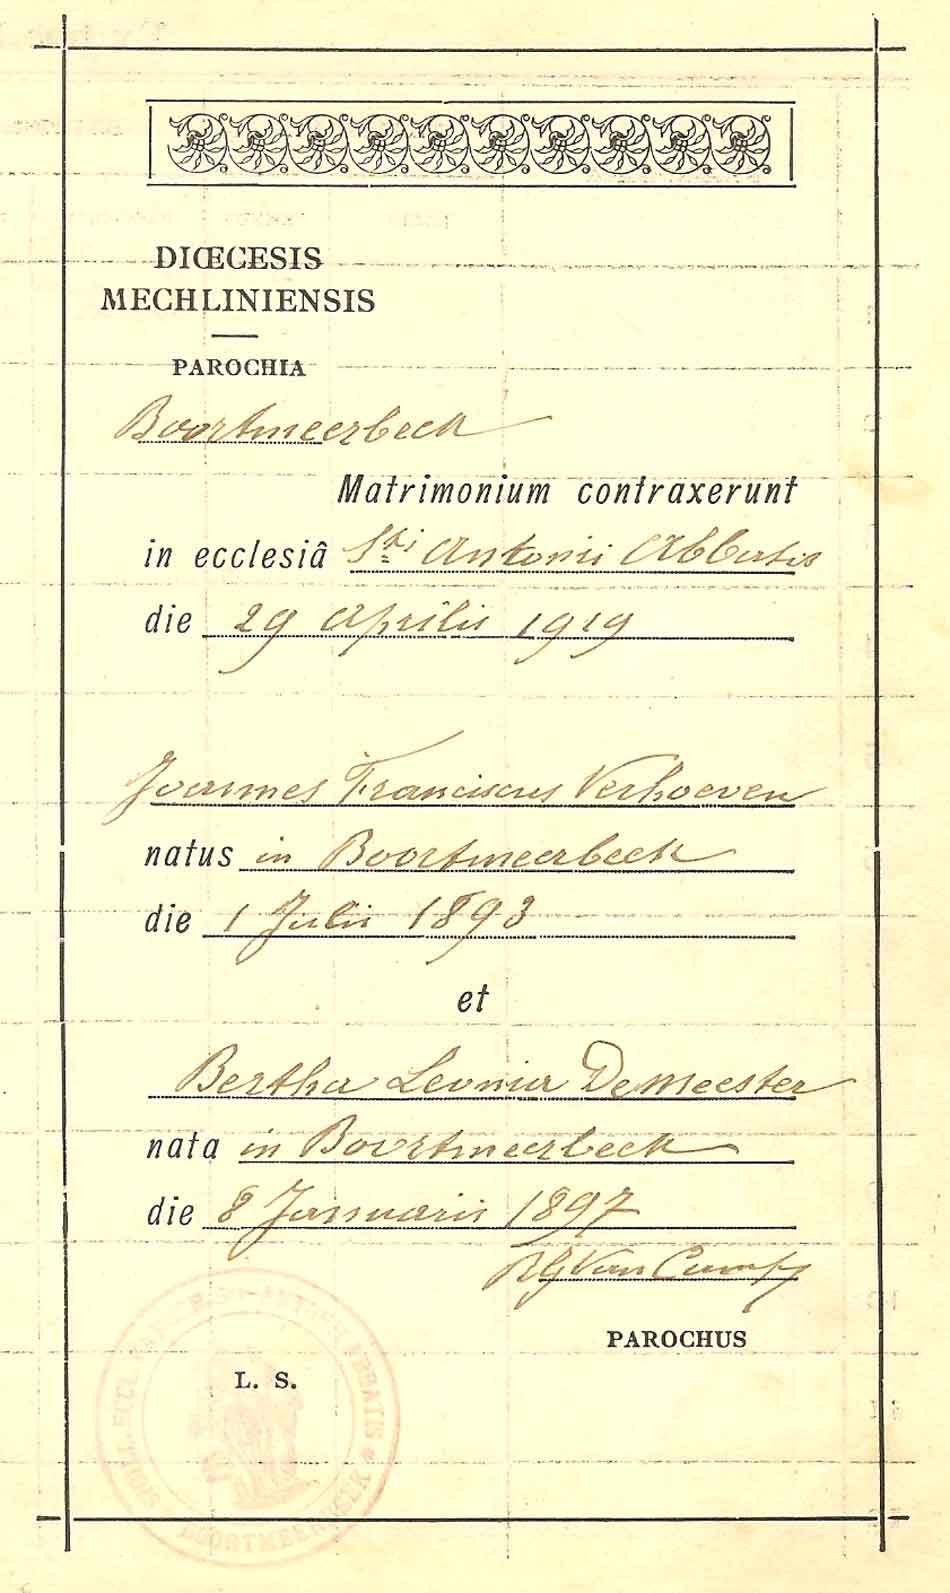 DIŒCESIS
MECHLINIENSIS
PAROCHIA
Boortmeerbeek
Matrimonium contraxerunt
in ecclesiâ Sti Antonii Abbatis
die 29 Aprilis 1919
Joannes Franciscus Verhoeven
natus in Boortmeerbeek
die 1 Julii 1893
et
Bertha Leonia De Meester
nata in Boortmeerbeek
die 8 Januarii 1897
Van Camp
PAROCHUS
L. S.
ABBATIS * BOORTMEERBEEK